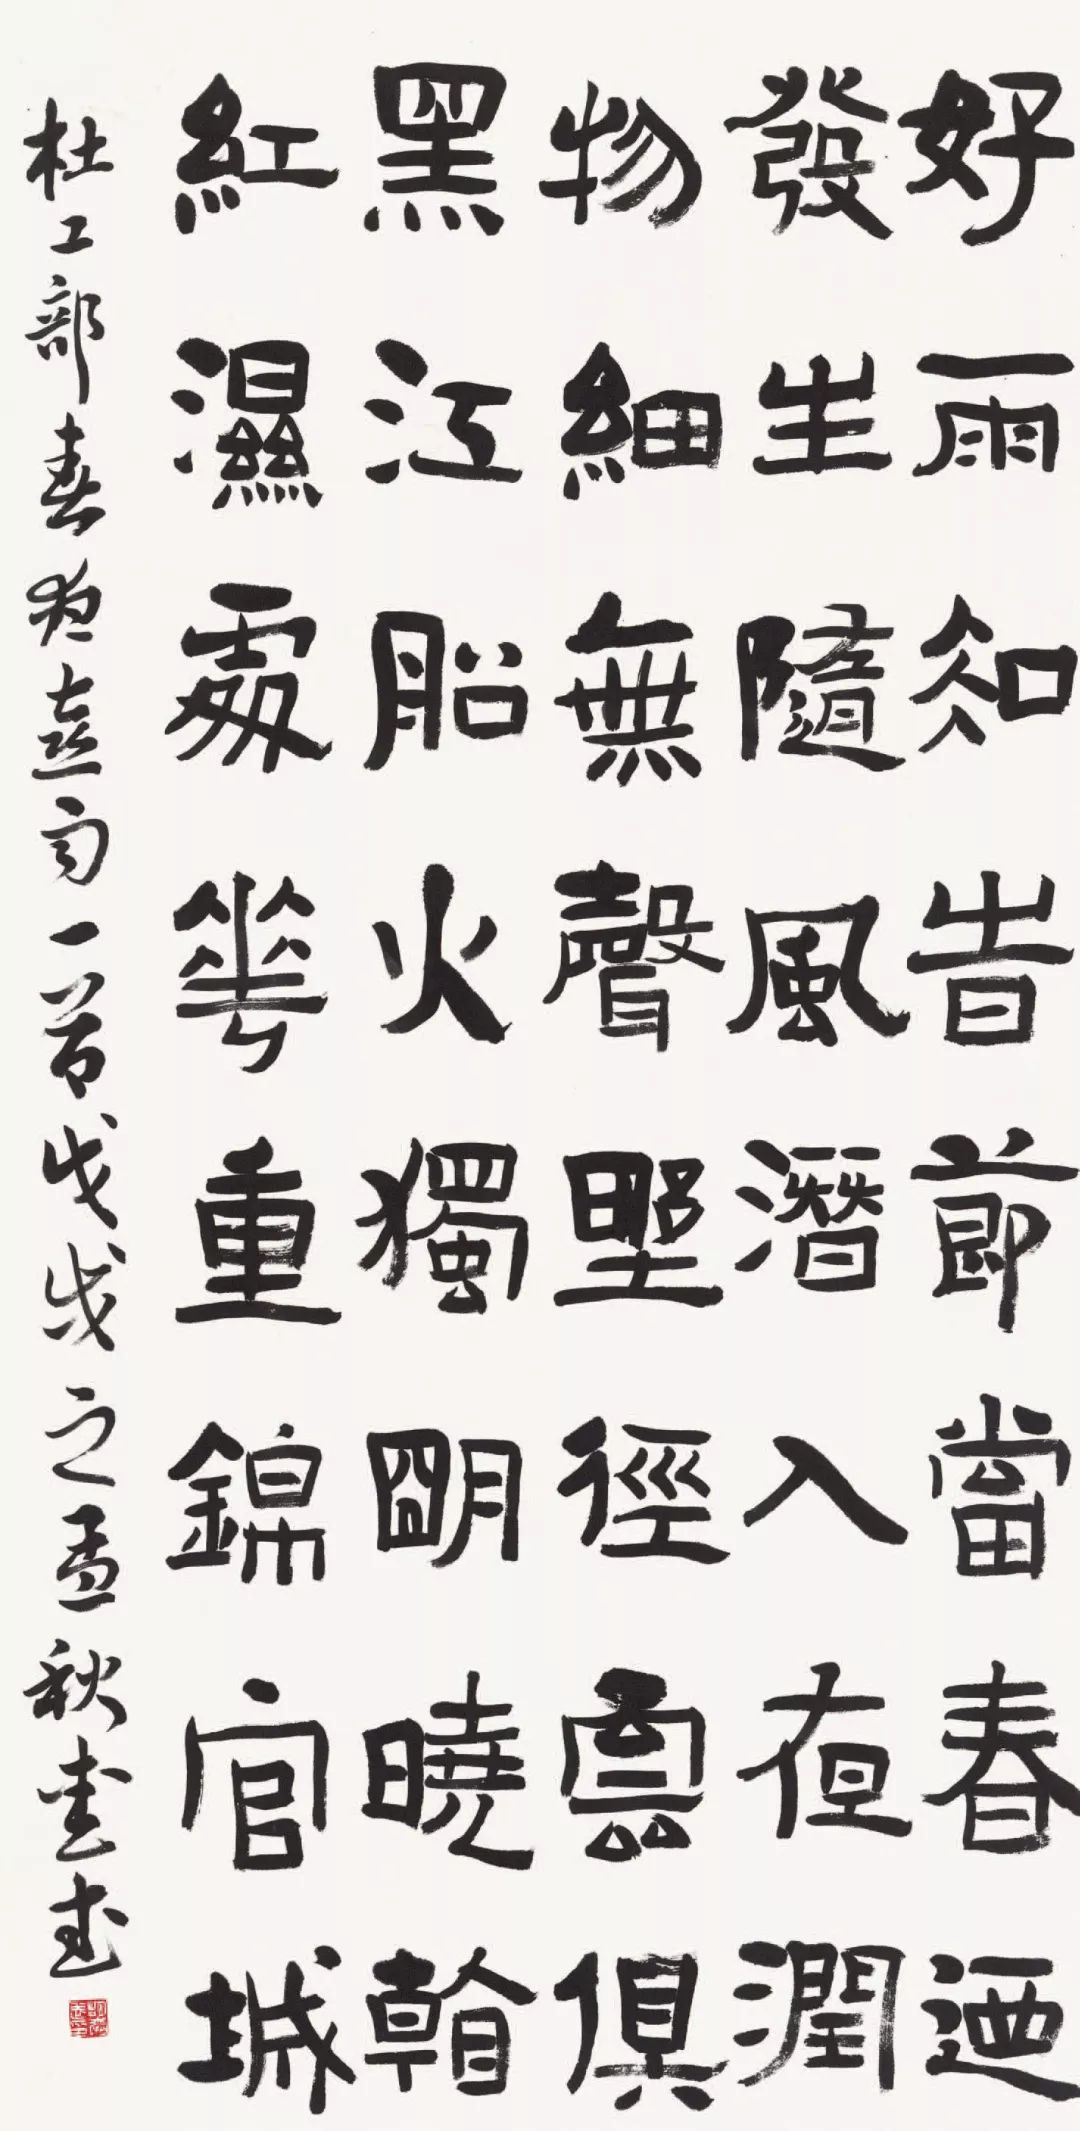 好雨知旹節當春迺
發生隨風潛入夜潤
物細無聲野徑雲俱
黑江船火獨朙曉看
紅濕處華重錦官城
杜工部春夜喜雨一首戊戌之孟秋